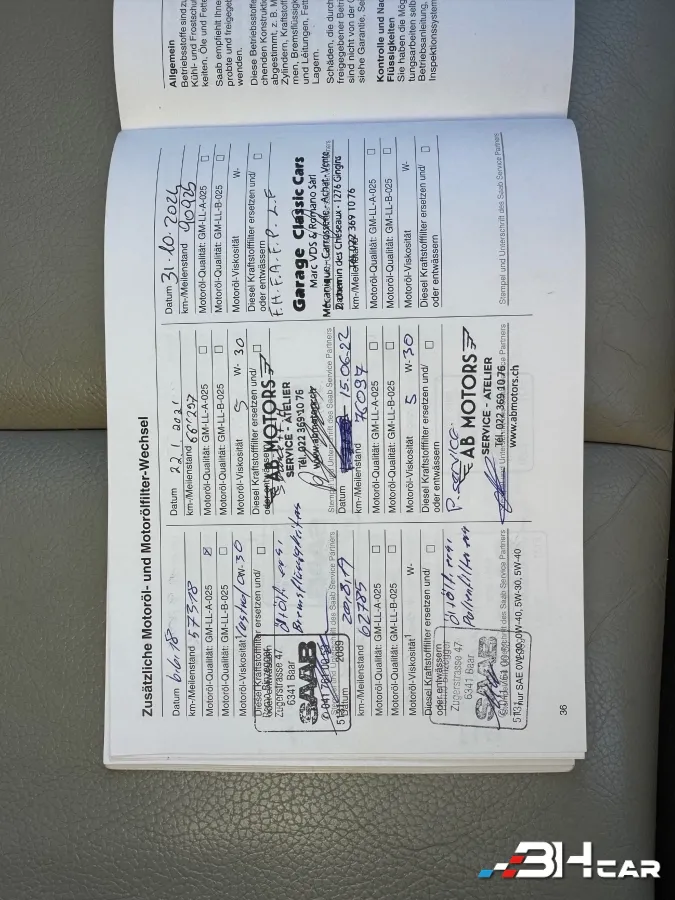 Allgemein
Betriebsstoffe sind zu
Kühl- und Frostschut
keiten, Öle und Fette
Saab empfiehlt Ihne
probte und freigegebe
wenden.
Diese Betriebsstoffe
chenden Konstruktio
abgestimmt, z. B. M
Zylindern, Kraftstoff
men, Bremsflüssigkei
und Leitungen, Fett
Lagern.
Schäden, die durch
freigegebener Betri
sind nicht von der G
siehe Garantie, Sei
Kontrolle und Nac
Flüssigkeiten
Sie haben die Mög
tungsarbeiten selb
Betriebsanleitung,
Inspektionssystem
Zusätzliche Motoröl- und Motorölfilter-Wechsel
Datum 6.6.18
km-/Meilenstand 57318
Motoröl-Qualität: GM-LL-A-025 ☒
Motoröl-Qualität: GM-LL-B-025 ☐
Motoröl-Viskosität 0W-30
Diesel Kraftstofffilter ersetzen und/ ☐
oder entwässern
Zugerstrasse 47
6341 Baar
SAAB
2089
Datum 20.8.19
km-/Meilenstand 62785
Motoröl-Qualität: GM-LL-A-025 ☐
Motoröl-Qualität: GM-LL-B-025 ☐
Motoröl-Viskosität¹ W-
Diesel Kraftstofffilter ersetzen und/ ☐
oder entwässern
Zugerstrasse 47
6341 Baar
SAAB
Datum 22.1.2021
km-/Meilenstand 66'297
Motoröl-Qualität: GM-LL-A-025 ☐
Motoröl-Qualität: GM-LL-B-025 ☐
Motoröl-Viskosität 5 W-30
Diesel Kraftstofffilter ersetzen und/ ☐
oder entwässern
AB MOTORS
SERVICE - ATELIER
Tél. 022 369 10 76
www.abmotors.ch
Stempel und Unterschrift des Saab Service Partners
Datum 15.06.22
km-/Meilenstand 76097
Motoröl-Qualität: GM-LL-A-025 ☐
Motoröl-Qualität: GM-LL-B-025 ☐
Motoröl-Viskosität 5 W-30
Diesel Kraftstofffilter ersetzen und/ ☐
oder entwässern
P. service
AB MOTORS
SERVICE - ATELIER
Tél. 022 369 10 76
www.abmotors.ch
Datum 31.10.2024
km-/Meilenstand 90926
Motoröl-Qualität: GM-LL-A-025 ☐
Motoröl-Qualität: GM-LL-B-025 ☐
Motoröl-Viskosität W-
Diesel Kraftstofffilter ersetzen und/ ☐
oder entwässern
F.H. F.A. F.P. L.F
Garage Classic Cars
Marc VDS & Romano Sàrl
Mécanique - Carrosserie - Achat - Vente
2 chemin des Chéseaux - 1276 Gingins
022 369 10 76
km-/Meilenstand
Motoröl-Qualität: GM-LL-A-025 ☐
Motoröl-Qualität: GM-LL-B-025 ☐
Motoröl-Viskosität W-
Diesel Kraftstofffilter ersetzen und/ ☐
oder entwässern
Stempel und Unterschrift des Saab Service Partners
nur SAE 0W-30, 0W-40, 5W-30, 5W-40
36
BHCAR